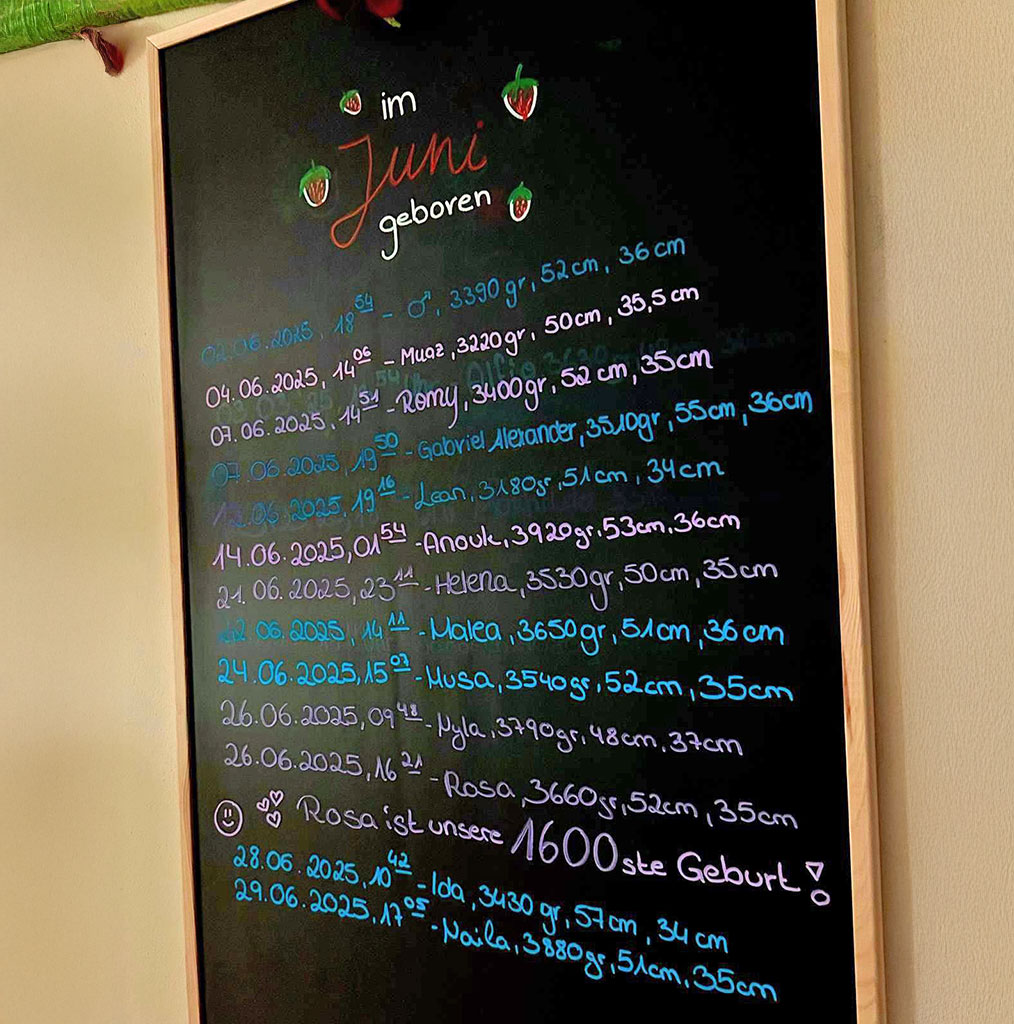 im
Juni
geboren
02.06.2025, 18 54 - ♂, 3390 gr, 52 cm, 36 cm
04.06.2025, 14 06 - Muaz, 3220 gr, 50 cm, 35,5 cm
07.06.2025, 14 51 - Romy, 3400 gr, 52 cm, 35 cm
07.06.2025, 19 50 - Gabriel Alexander, 3510 gr, 55 cm, 36 cm
12.06.2025, 19 16 - Lean, 3180 gr, 51 cm, 34 cm
14.06.2025, 01 54 - Anouk, 3920 gr, 53 cm, 36 cm
21.06.2025, 23 11 - Helena, 3530 gr, 50 cm, 35 cm
22.06.2025, 14 11 - Malea, 3650 gr, 51 cm, 36 cm
24.06.2025, 15 07 - Musa, 3540 gr, 52 cm, 35 cm
26.06.2025, 09 48 - Nyla, 3790 gr, 48 cm, 37 cm
26.06.2025, 16 21 - Rosa, 3660 gr, 52 cm, 35 cm
Rosa ist unsere 1600ste Geburt!
28.06.2025, 10 42 - Ida, 3430 gr, 57 cm, 34 cm
29.06.2025, 17 05 - Naila, 3880 gr, 51 cm, 35 cm